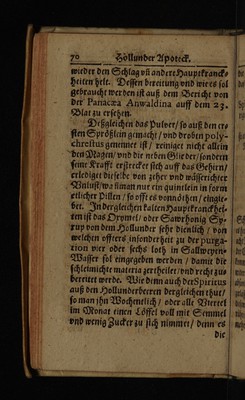 70 Hollunder Apoteck.
wieder den Schlag vñ andere Hauptkranck-
heiten helt. Dessen bereitung vnd wie es sol
gebraucht werden ist auß dem Bericht von
der Panacæa Anwaldina auff dem 23.
Blat zu ersehen.
Deßgleichen das Pulver / so auß den er-
sten Sprößlein gemacht / vnd droben poly-
chrestus genennet ist / reiniget nicht allein
den Magen / vnd die neben Glieder / sondern
seine Krafft erstrecket sich auff das Gehirn /
erlediget dieselbe von zeher vnd wässerichter
Vnlust / wañ man nur ein quintelein in form
etlicher Pillen / so offt es vonnöthen / eingie-
bet. In dergleichen kalten Hauptkranckhei-
ten ist das Oxymel / oder Sawrhonig Sy-
rup von dem Hollunder sehr dienlich / von
welchen öffters insonderheit zu der purga-
tion vier oder sechs loth in Salweyen-
Wasser sol eingegeben werden / damit die
schleimichte materia zertheilet / vnd recht zu-
bereitet werde. Wie denn auch der Spiritus
auß den Hollunderbeeren dergleichen thut /
so man jhn Wochentlich / oder alle Viertel
im Monat einen Löffel voll mit Semmel
vnd wenig Zucker zu sich nimmet / denn es
die